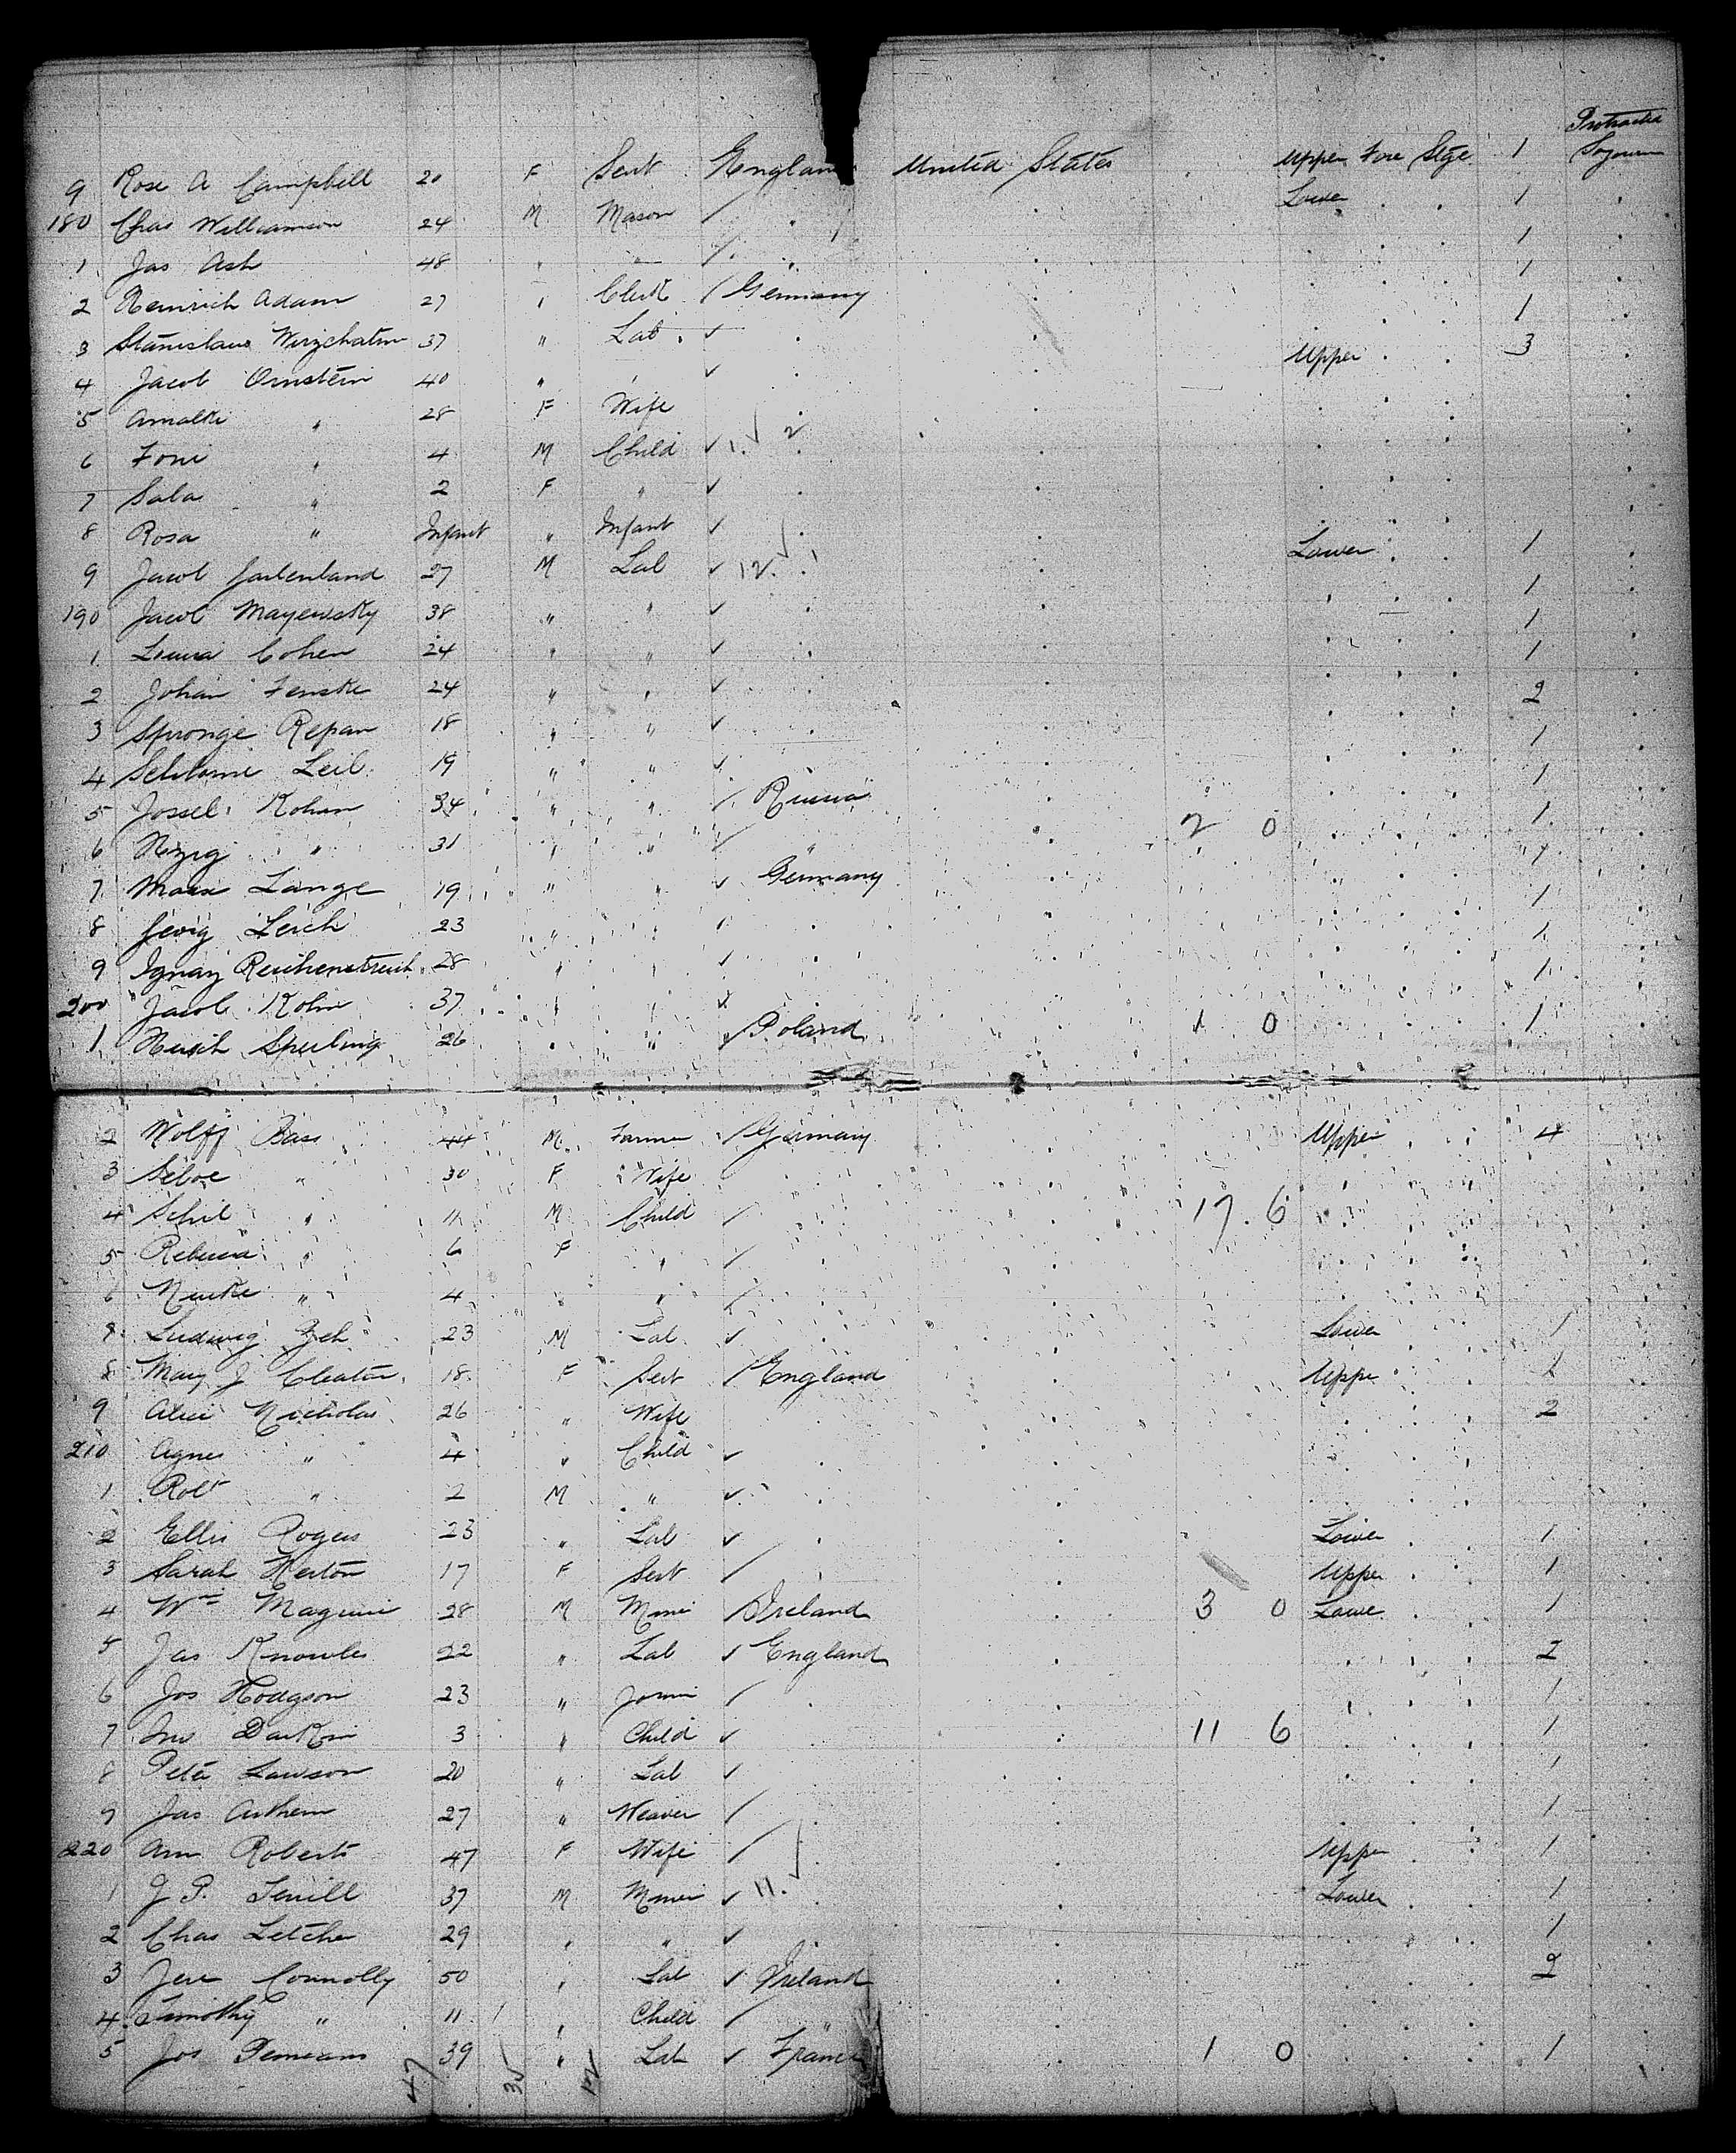 Protracted
9 Rose A Campbell 20 F Servt England United States Upper Fore Stge 1 Sojourn
180 Chas Williamson 24 M Mason / Lower 1
1 Jas Ash 48 " " / 1
2 Heinrich Adam 27 " Clerk / Germany 1
3 Stanislaus 37 " Lab ✓ 1
4 Jacob Ornstein 40 " ✓ Upper 3
5 Amalke " 28 F Wife
6 Foni " 4 M Child ✓ 1 ✓ 2
7 Sala " 2 F " ✓
8 Rosa " Infant " Infant ✓
9 Jacob Gartenland 27 M Lab ✓ 12 ✓ Lower 1
190 Jacob Mayewsky 38 " " ✓ 1
1 Cohen 24 " " ✓ 1
2 Johan Fenske 24 " " ✓ 1
3 Spronge Repan 18 " " ✓ 2
4 Schlome Leib 19 " " ✓ 1
5 Jossel Kohan 34 " " / Russia 1
6 Hezig " 31 " " / " 2 0 1
7 Lange 19 " " ✓ Germany 1
8 Georg Lerch 23 " " / 1
9 Ignaz Reichenstreich 28 " " ✓ 1
200 Jacob Kohn 37 " " ✓ 1
1 Hersch Sperling 26 " " / Poland 1 0 1
2 Wolff Bass 44 M Farmer / Germany Upper 4
3 " 30 F Wife
4 Schil " 11 M Child / 17 6
5 Rebecca " 6 F " /
6 " 4 " " /
7 Ludwig Zeh 23 M Lab ✓ Lower 1
8 Mary J Cleaton 18 F Sert / England Uppe 1
9 Alice Nicholas 26 " Wife 2
210 Agnes " 4 " Child ✓
1 Robt " 2 M " ✓
2 Ellis Rogers 23 " Lab ✓ Lower 1
3 Sarah Herton 17 F Sert / Upper 1
4 Wm Maguire 28 M Miner / Ireland 3 0 Lowe 1
5 Jas Knowles 22 " Lab ✓ England 2
6 Jos Hodgson 23 " Joiner / 1
7 Jno 3 " Child ✓ 11 6 1
8 Peter Lawson 20 " Lab ✓ 1
9 Jas 27 " Weaver / 1
220 Ann Roberts 47 F Wife / Upper 1
1 J P. 37 M Miner ✓ 11 ✓ Lower 1
2 Chas Letcher 29 " " ✓ 1
3 Jere Connolly 50 " Lab ✓ Ireland 2
4 Timothy " 11 " Child / "
5 Jos 39 " Lab ✓ France 1 0 1
47